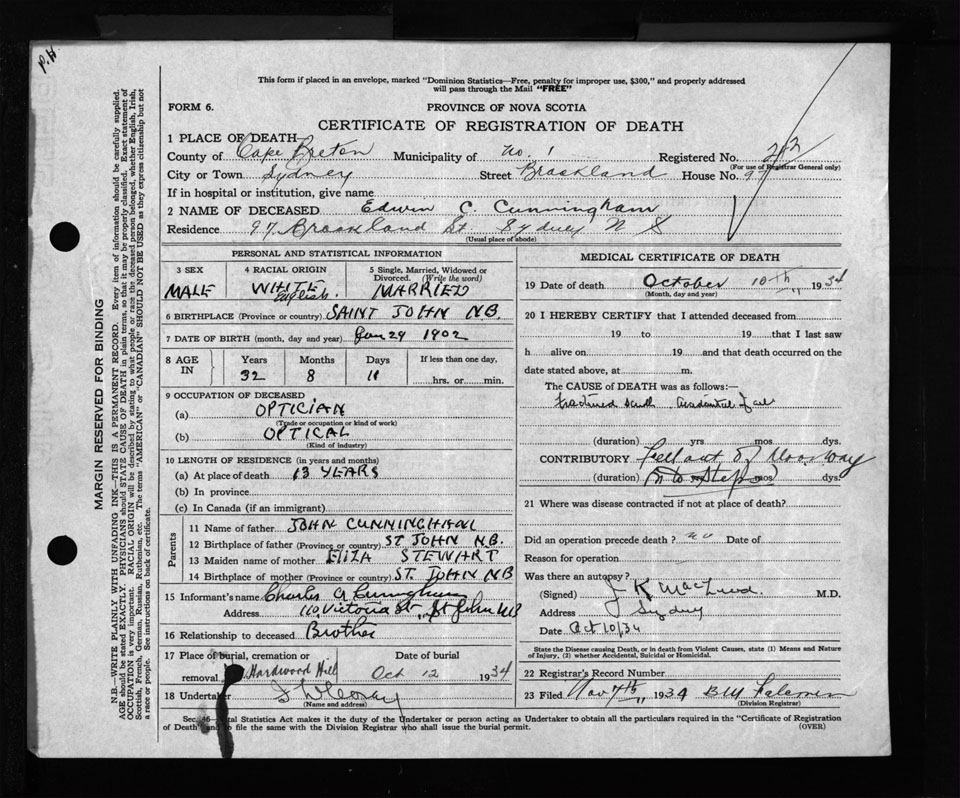 P.H.
This form if placed in an envelope, marked "Dominion Statistics—Free, penalty for improper use, $300," and properly addressed
will pass through the Mail "FREE"
FORM 6. PROVINCE OF NOVA SCOTIA
CERTIFICATE OF REGISTRATION OF DEATH
1 PLACE OF DEATH
County of Cape Breton Municipality of No. 1 Registered No. 242
(For use of Registrar General only)
City or Town Sydney Street Brookland House No. 97
If in hospital or institution, give name
2 NAME OF DECEASED Edwin C. Cunningham
Residence 97 Brookland St. Sydney N S
(Usual place of abode)
PERSONAL AND STATISTICAL INFORMATION
3 SEX 4 RACIAL ORIGIN 5 Single, Married, Widowed or
Divorced. (Write the word)
MALE WHITE English. MARRIED
6 BIRTHPLACE (Province or country) SAINT JOHN N.B.
7 DATE OF BIRTH (month, day and year) Jan 29 1902
8 AGE IN Years Months Days If less than one day,
32 8 11 hrs. or min.
9 OCCUPATION OF DECEASED
(a) OPTICIAN
(Trade or occupation or kind of work)
(b) OPTICAL
(Kind of industry)
10 LENGTH OF RESIDENCE (in years and months)
(a) At place of death 13 YEARS
(b) In province
(c) In Canada (if an immigrant)
Parents
11 Name of father JOHN CUNNINGHAM
12 Birthplace of father (Province or country) ST JOHN N.B.
13 Maiden name of mother ELIZA STEWART
14 Birthplace of mother (Province or country) ST. JOHN NB
15 Informant's name Charles A Cunningham
Address 110 Victoria St., St John NB
16 Relationship to deceased Brother
17 Place of burial, cremation or Date of burial
removal Hardwood Hill Oct 12 1934
18 Undertaker
(Name and address)
MEDICAL CERTIFICATE OF DEATH
19 Date of death October 10th 1934
(Month, day and year)
20 I HEREBY CERTIFY that I attended deceased from
19 to 19 that I last saw
h alive on 19 and that death occurred on the
date stated above, at m.
The CAUSE of DEATH was as follows:—
fractured skull accidental fall
(duration) yrs mos dys.
CONTRIBUTORY Fell out of Doorway
(duration) onto Steps mos dys.
21 Where was disease contracted if not at place of death?
Did an operation precede death? no Date of
Reason for operation
Was there an autopsy?
(Signed) J K MacLeod M.D.
Address Sydney
Date Oct 10/34
State the Disease causing Death, or in death from Violent Causes, state (1) Means and Nature
of Injury, (2) whether Accidental, Suicidal or Homicidal.
22 Registrar's Record Number
23 Filed Nov 7th 1934
(Division Registrar)
Sec. Vital Statistics Act makes it the duty of the Undertaker or person acting as Undertaker to obtain all the particulars required in the "Certificate of Registration
of Death" and to file the same with the Division Registrar who shall issue the burial permit. (OVER)
MARGIN RESERVED FOR BINDING
N.B.—WRITE PLAINLY WITH UNFADING INK—THIS IS A PERMANENT RECORD. Every item of information should be carefully supplied.
AGE should be stated EXACTLY. PHYSICIANS should STATE CAUSE OF DEATH in plain terms, so that it may be properly classified. Exact statement of
OCCUPATION is very important. RACIAL ORIGIN will be described by stating to what people or race the deceased person belonged, whether English, Irish,
Scottish, French, German, Russian, Ruthenian, etc. The terms "AMERICAN" or "CANADIAN" SHOULD NOT BE USED as they express citizenship but not
a race or people. See instructions on back of certificate.